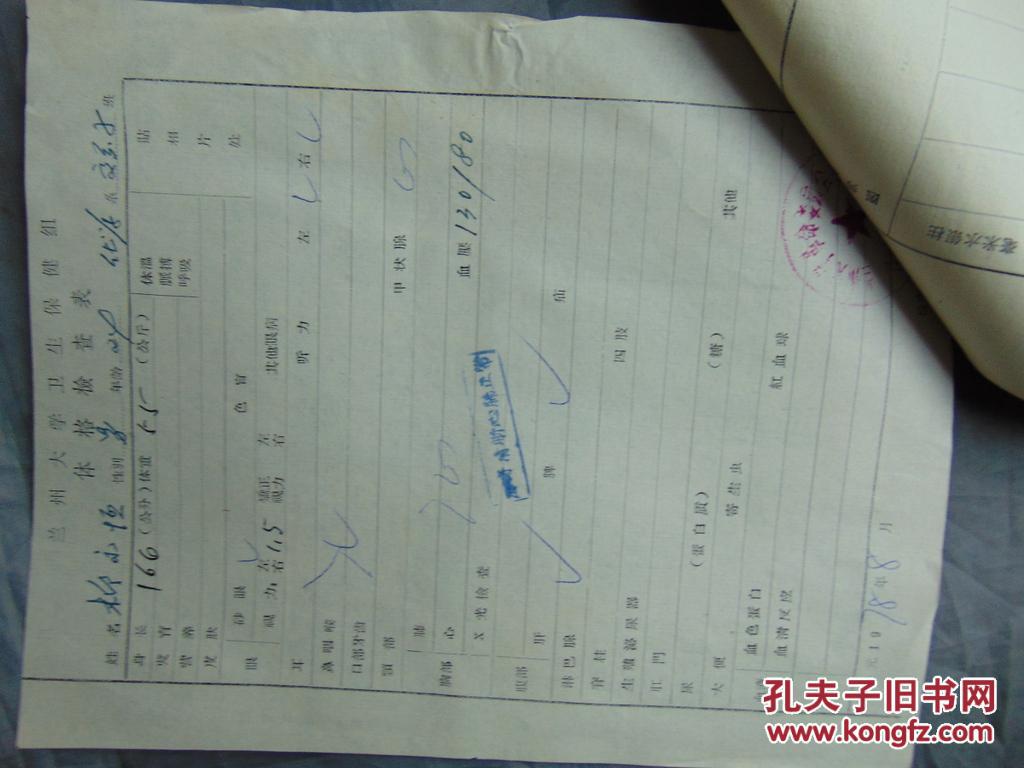 兰州大学卫生保健组
体格檢查表
姓名 柳永恒 性别 男 年龄 24 化学 系 班
身長 166 (公分) 体重 55 (公斤) 体温
发育 脈搏
营养 呼吸
皮肤
貼相片处
眼 砂眼 色盲
视力 左右 1.5 矯正视力 左右 其他眼病
耳 听力 左 右
鼻咽喉
口部牙齿
頸部 甲状腺
胸部 肺
心 血壓 130/80
X光檢查 心肺正常
腹部 肝 脾 疝
淋巴腺
脊柱 四肢
生殖部尿器
肛門
尿 (蛋白質) (糖)
大便 寄生虫 其他
血色蛋白 紅血球
血清反应
元19 78 年 8 月
毫米水銀柱
孔夫子旧书网
www.kongfz.com